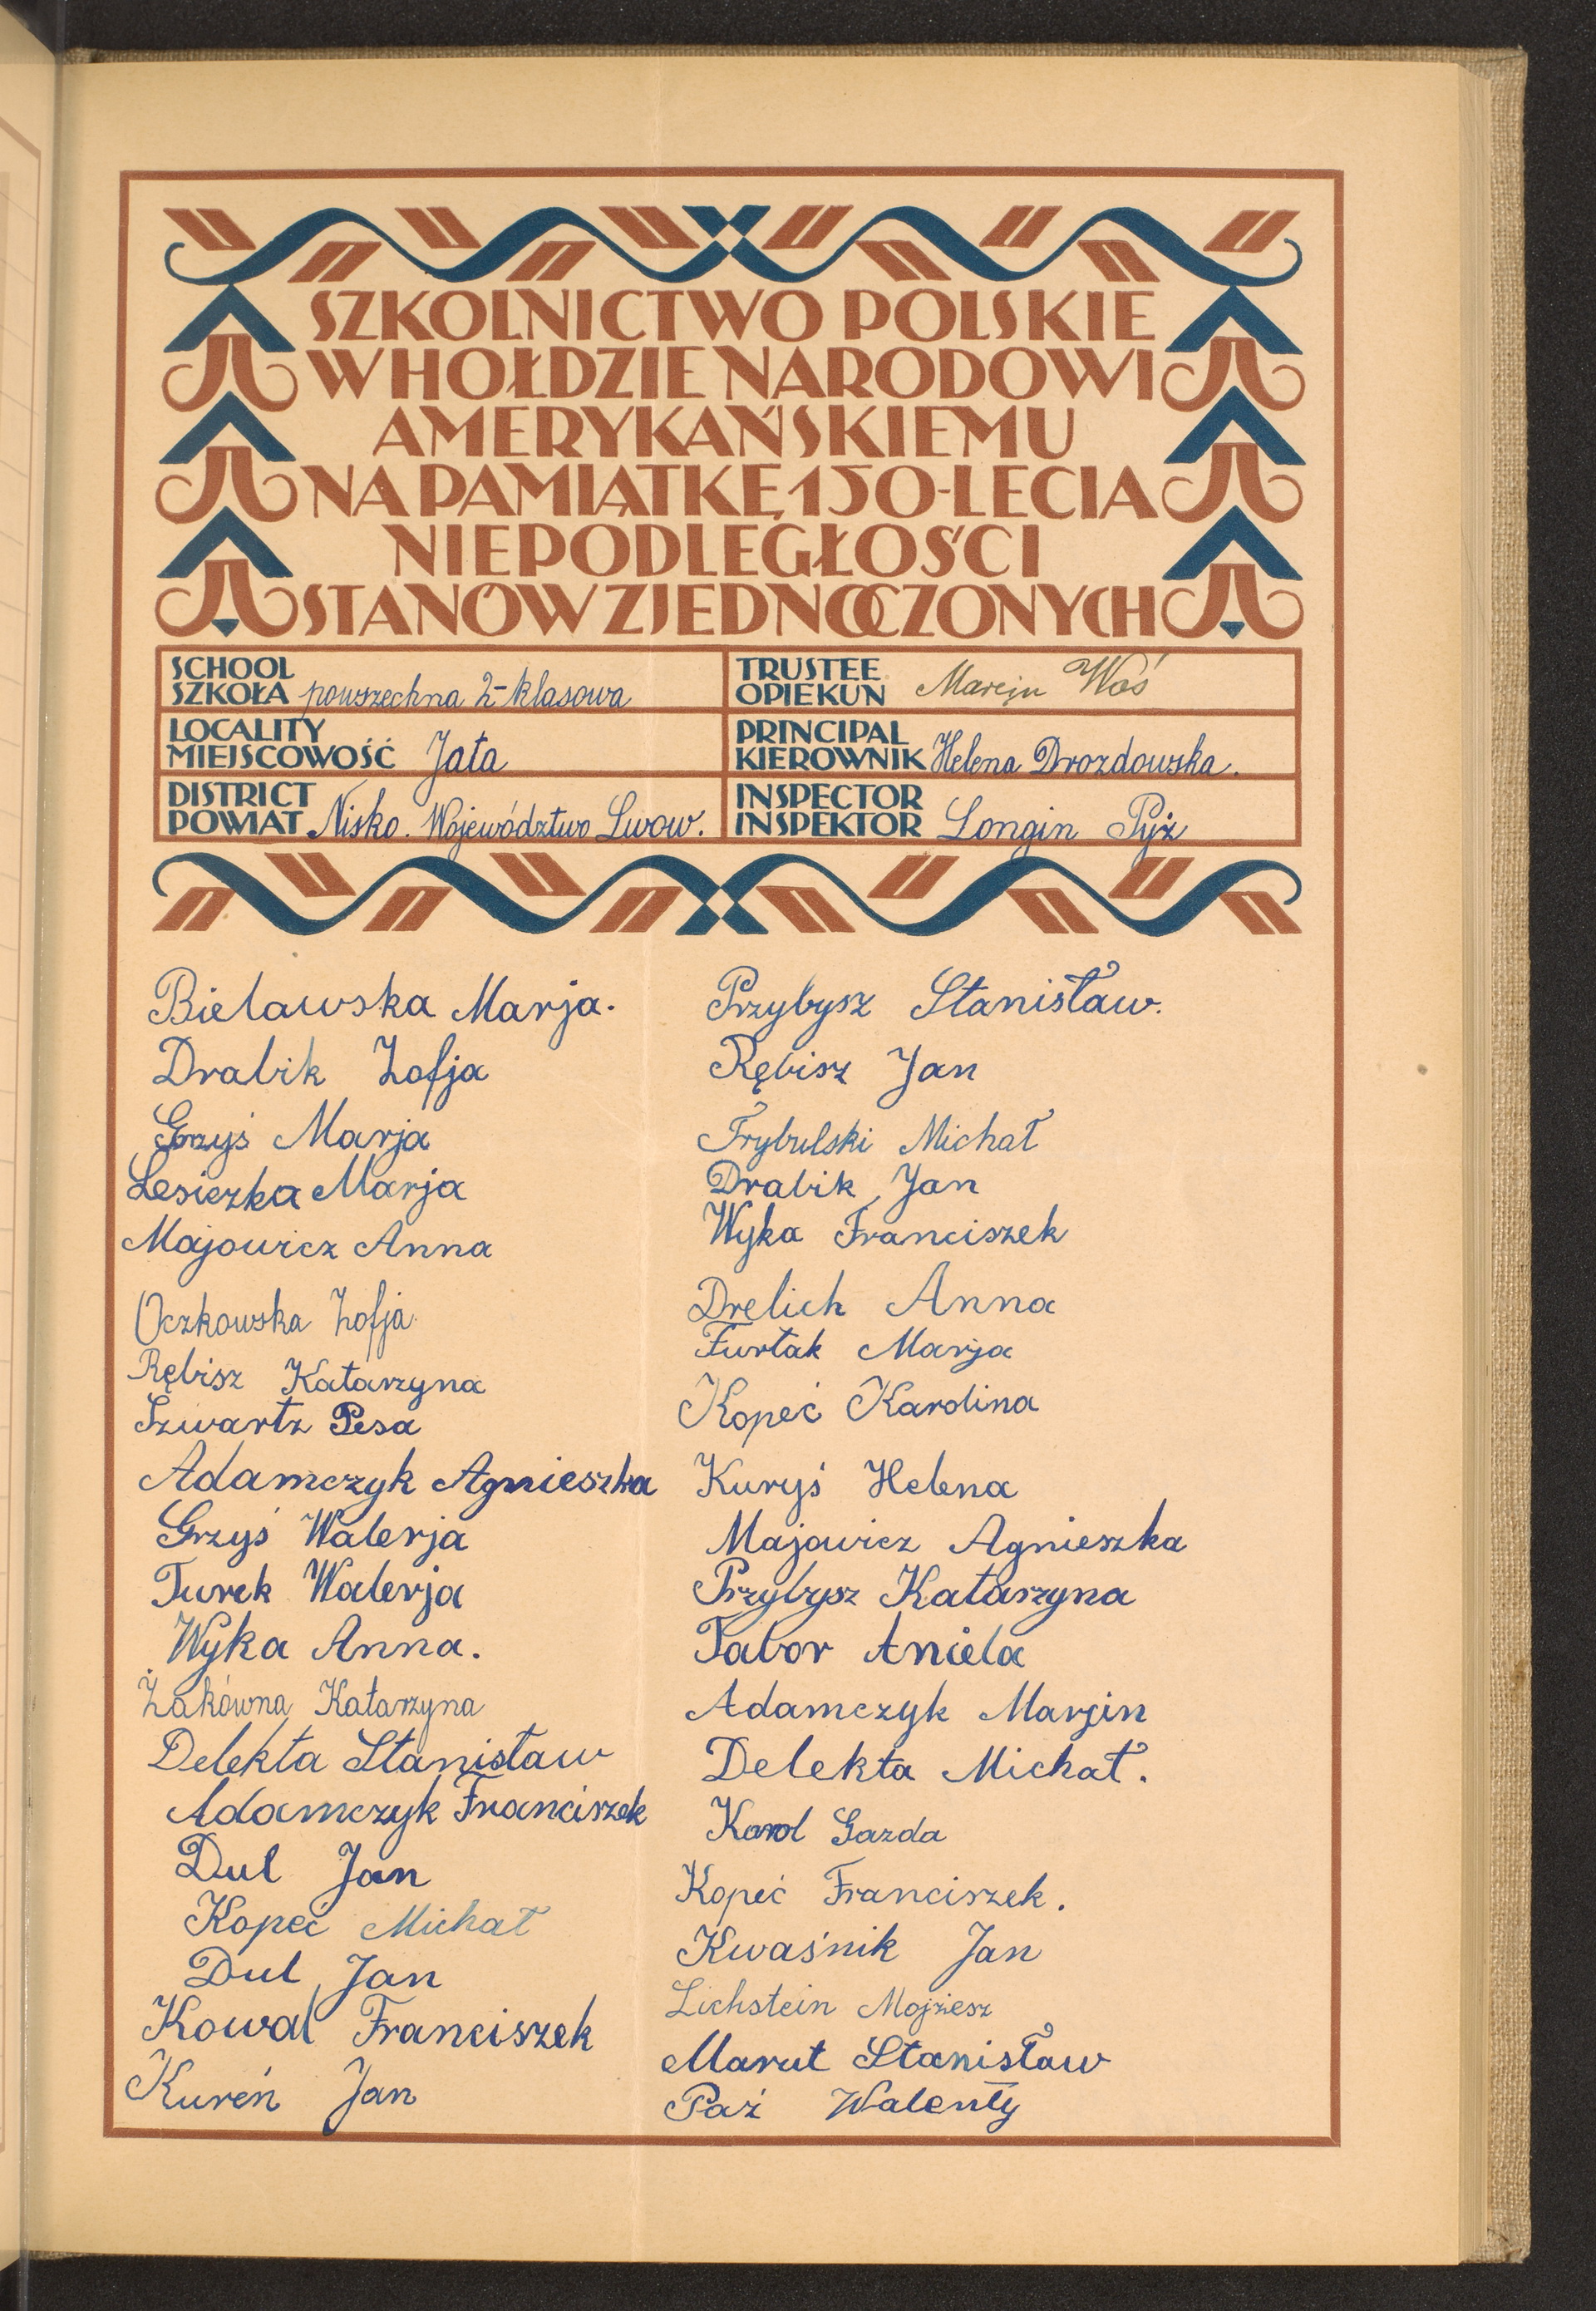 SZKOLNICTWO POLSKIE
W HOŁDZIE NARODOWI
AMERYKAŃSKIEMU
NA PAMIĄTKĘ 150-LECIA
NIEPODLEGŁOŚCI
STANÓW ZJEDNOCZONYCH
SCHOOL
SZKOŁA powszechna 2-klasowa
TRUSTEE
OPIEKUN Marcin Woś
LOCALITY
MIEJSCOWOŚĆ Jata
PRINCIPAL
KIEROWNIK Helena Drozdowska.
DISTRICT
POWIAT Nisko. Województwo Lwow.
INSPECTOR
INSPEKTOR Longin Pyż
Bielawska Marja.
Drabik Zofja
Grzyś Marja
Lesiczka Marja
Majowicz Anna
Oczkowska Zofja
Rębisz Katarzyna
Szwartz Pesa
Adamczyk Agnieszka
Grzyś Walerja
Turek Walerja
Wyka Anna.
Żakówna Katarzyna
Delekta Stanisław
Adamczyk Franciszek
Dul Jan
Kopeć Michał
Dul Jan
Kowal Franciszek
Kureń Jan
Przybysz Stanisław.
Rębisz Jan
Trybulski Michał
Drabik Jan
Wyka Franciszek
Drelich Anna
Furtak Marja
Kopeć Karolina
Kuryś Helena
Majowicz Agnieszka
Przybysz Katarzyna
Tabor Aniela
Adamczyk Marcin
Delekta Michał.
Karol Gazda
Kopeć Franciszek.
Kwaśnik Jan
Lichstein Mojżesz
Marut Stanisław
Paź Walenty